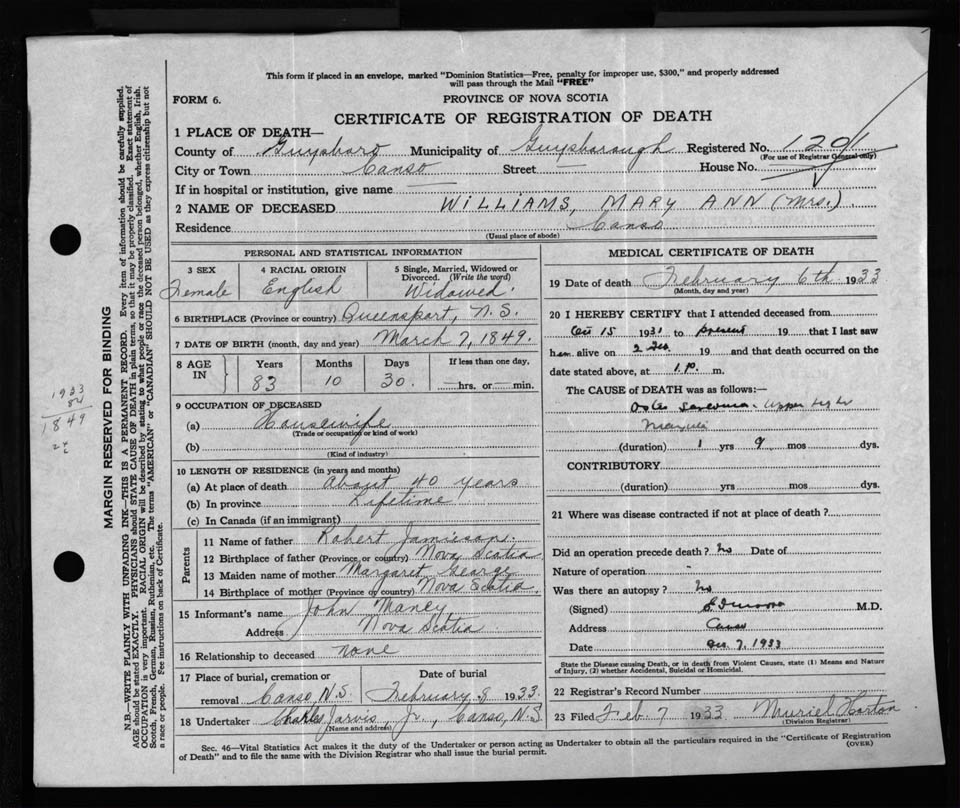 This form if placed in an envelope, marked "Dominion Statistics—Free, penalty for improper use, $300," and properly addressed
will pass through the Mail "FREE"
FORM 6.
PROVINCE OF NOVA SCOTIA
CERTIFICATE OF REGISTRATION OF DEATH
1 PLACE OF DEATH—
County of Guysboro Municipality of Guysborough Registered No. 1201
(For use of Registrar General only)
City or Town Canso Street House No.
If in hospital or institution, give name
2 NAME OF DECEASED WILLIAMS, MARY ANN (Mrs.)
Residence Canso
(Usual place of abode)
PERSONAL AND STATISTICAL INFORMATION
3 SEX Female
4 RACIAL ORIGIN English
5 Single, Married, Widowed or Divorced. (Write the word) Widowed.
6 BIRTHPLACE (Province or country) Queensport, N.S.
7 DATE OF BIRTH (month, day and year) March 7, 1849.
8 AGE IN Years 83 Months 10 Days 30. If less than one day, — hrs. or — min.
9 OCCUPATION OF DECEASED
(a) Housewife
(Trade or occupation or kind of work)
(b)
(Kind of industry)
10 LENGTH OF RESIDENCE (in years and months)
(a) At place of death About 40 years
(b) In province Lifetime
(c) In Canada (if an immigrant)
Parents
11 Name of father Robert Jamieson.
12 Birthplace of father (Province or country) Nova Scotia
13 Maiden name of mother Margaret George
14 Birthplace of mother (Province or country) Nova Scotia.
15 Informant's name John Maney,
Address Nova Scotia
16 Relationship to deceased none
17 Place of burial, cremation or removal Canso N.S. Date of burial February 8 1933.
18 Undertaker Charles Jarvis, Jr., Canso, N.S.
(Name and address)
MEDICAL CERTIFICATE OF DEATH
19 Date of death February 6th 1933
(Month, day and year)
20 I HEREBY CERTIFY that I attended deceased from
15 1931 to present 19 that I last saw
her alive on 2 Feb. 19 and that death occurred on the
date stated above, at 1 p. m.
The CAUSE of DEATH was as follows:—
Osteo Sarcoma - upper right
(duration) 1 yrs 9 mos dys.
CONTRIBUTORY
(duration) yrs mos dys.
21 Where was disease contracted if not at place of death?
Did an operation precede death? No Date of
Nature of operation
Was there an autopsy? No
(Signed) M.D.
Address Canso
Date 7, 1933
State the Disease causing Death, or in death from Violent Causes, state (1) Means and Nature
of Injury, (2) whether Accidental, Suicidal or Homicidal.
22 Registrar's Record Number
23 Filed Feb 7 1933 Muriel Horton
(Division Registrar)
Sec. 46—Vital Statistics Act makes it the duty of the Undertaker or person acting as Undertaker to obtain all the particulars required in the "Certificate of Registration
of Death" and to file the same with the Division Registrar who shall issue the burial permit.
(OVER)
MARGIN RESERVED FOR BINDING
N.B.—WRITE PLAINLY WITH UNFADING INK—THIS IS A PERMANENT RECORD. Every item of information should be carefully supplied.
AGE should be stated EXACTLY. PHYSICIANS should STATE CAUSE OF DEATH in plain terms, so that it may be properly classified. Exact statement of
OCCUPATION is very important. RACIAL ORIGIN will be described by stating to what people or race the deceased person belonged, whether English, Irish,
Scotch, French, German, Russian, Ruthenian, etc. The terms "AMERICAN" or "CANADIAN" SHOULD NOT BE USED as they express citizenship but not
a race or people. Fee instructions on back of Certificate.
1933
84
1849